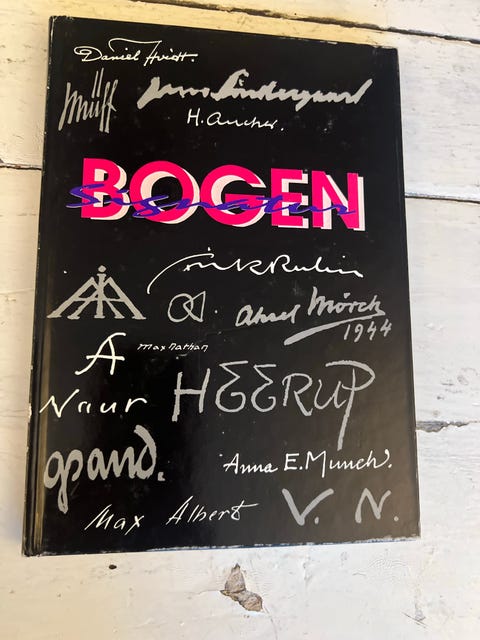 Daniel Hvidt.
Müff
Jens Søndergaard
H. Ancher.
BOGEN
Signatur
Axel Mörch
1944
A
Max Nathan
Naur
HEERUP
Anna E. Munch.
Max Albert
V. N.